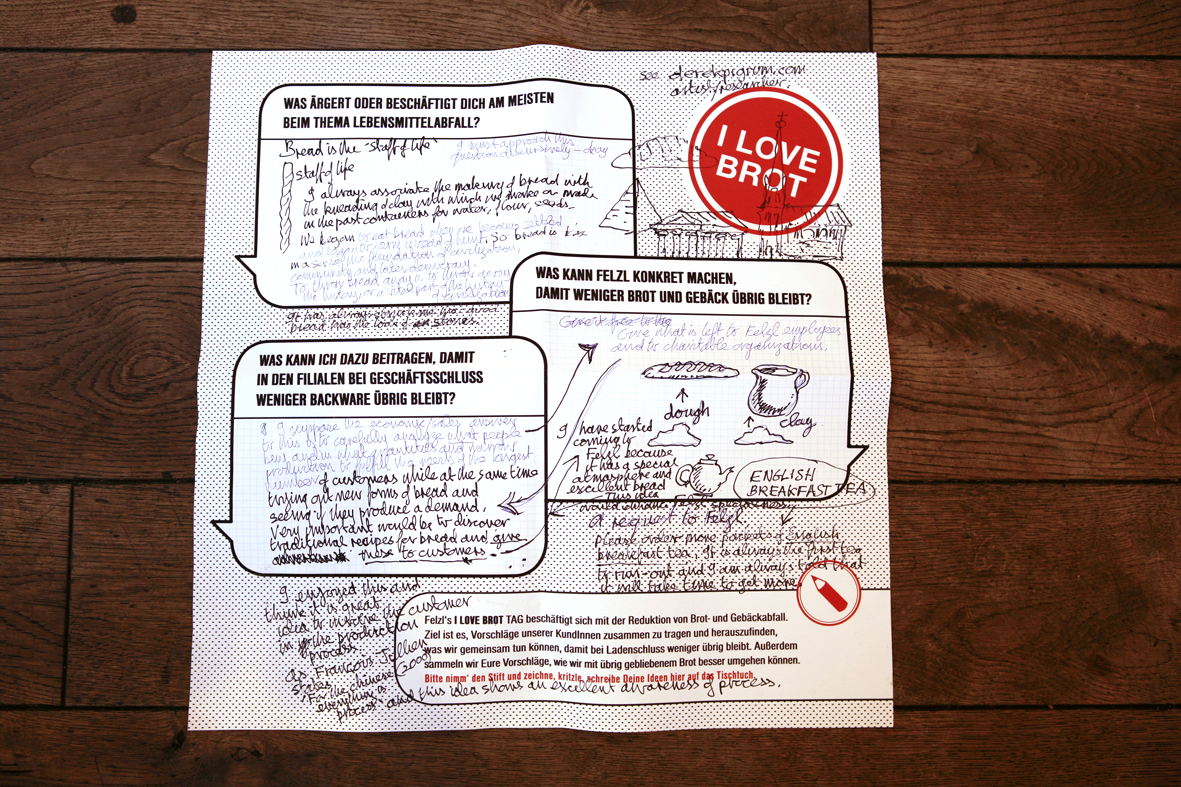 see derekpigrum.com
artist/researcher.
I LOVE
BROT
WAS ÄRGERT ODER BESCHÄFTIGT DICH AM MEISTEN
BEIM THEMA LEBENSMITTELABFALL?
Bread is the "staff of life"
I must approach this
question discursively – clay
staff of life
I always associate the making of bread with
the kneading of clay with which we make or made
in the past containers for water, flour, seeds
We began to eat bread when we became settled
So bread is
the foundation of civilization,
community and later democracy.
To throw bread away is to throw away
the history
It has always
bread has the look of stones.
WAS KANN FELZL KONKRET MACHEN,
DAMIT WENIGER BROT UND GEBÄCK ÜBRIG BLEIBT?
Give what is left to Felzl employees
and to charitable organizations.
dough
clay
I have started
coming to
Felzl because
it has a special
atmosphere and
excellent bread
This idea
would enhance
ENGLISH
BREAKFAST TEA
A request to Felzl
please order more packets of English
breakfast tea, It is always the first tea
to run-out and I am always told that
it will take time to get more
WAS KANN ICH DAZU BEITRAGEN, DAMIT
IN DEN FILIALEN BEI GESCHÄFTSSCHLUSS
WENIGER BACKWARE ÜBRIG BLEIBT?
I suppose the economic/sales answer
to this is to carefully analyse what people
buy and in what quantities and
production to fulfill the needs of the largest
number of customers while at the same time
trying out new forms of bread and
seeing if they produce a demand,
Very important would be to discover
traditional recipes for bread and give
these to customers
I enjoyed this and
think it is a great
idea to involve the customer
in the production
process.
As Francois Jullien
states
"For the chinese
everything is
process" and this idea shows an excellent awareness of process.
Felzl's I LOVE BROT TAG beschäftigt sich mit der Reduktion von Brot- und Gebäckabfall.
Ziel ist es, Vorschläge unserer KundInnen zusammen zu tragen und herauszufinden,
was wir gemeinsam tun können, damit bei Ladenschluss weniger übrig bleibt. Außerdem
sammeln wir Eure Vorschläge, wie wir mit übrig gebliebenem Brot besser umgehen können.
Bitte nimm' den Stift und zeichne, kritzle, schreibe Deine Ideen hier auf das Tischtuch.